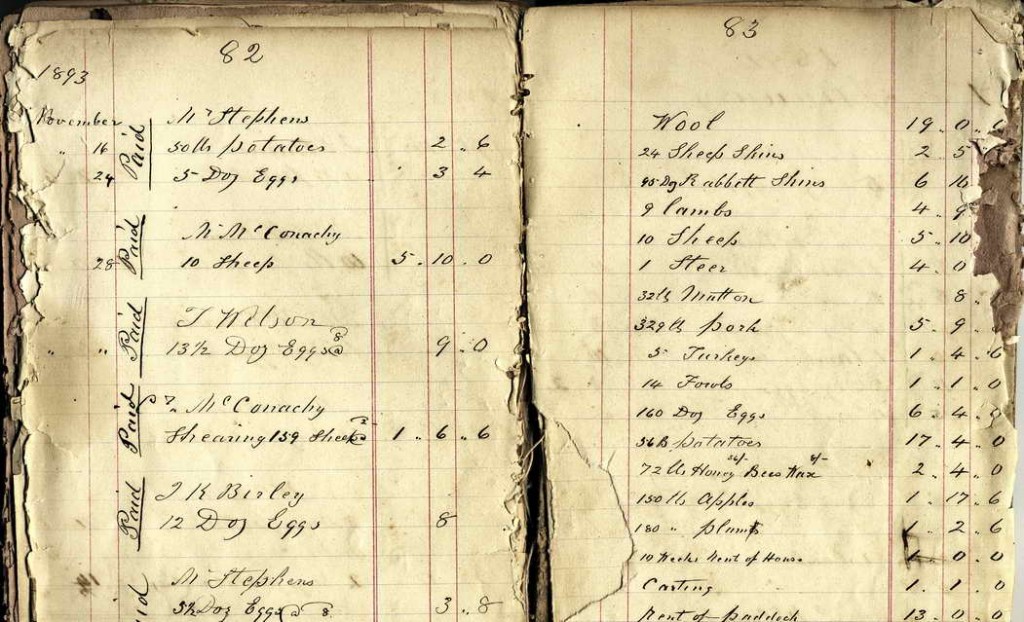 82
1893
November Mr Stephens
" 16 Paid 50 lb potatoes 2 " 6
24 5 Doz Eggs 3 4
Paid Mr McConachy
28 10 Sheep 5 . 10 . 0
Paid T Wilson
" " 13½ Doz Eggs @ 8 9 . 0
Paid Mr McConachy
Shearing 159 Sheep 1 . 6 . 6
Paid J K Birley
12 Doz Eggs 8
Mr Stephens
5½ Doz Eggs @ 8 3 . 8
83
Wool 19 . 0 . 6
24 Sheep Skins 2 . 5
95 Doz Rabbett Skins 6 16
9 lambs 4 . 9
10 Sheep 5 . 10
1 Steer 4 . 0
32 lb Mutton 8 .
329 lb pork 5 . 9 .
5 Turkeys 1 . 4 . 6
14 Fowls 1 . 1 . 0
160 Doz Eggs 6 . 4 .
potatoes 17 . 4 . 0
72 lb Honey Bees Wax 2 . 4 . 0
150 lb Apples 1 . 17 . 6
180 " plums 1 . 2 . 6
10 Weeks Rent of House 1 . 0 . 0
Carting 1 . 1 . 0
Rent of paddock 13 . 0 . 0